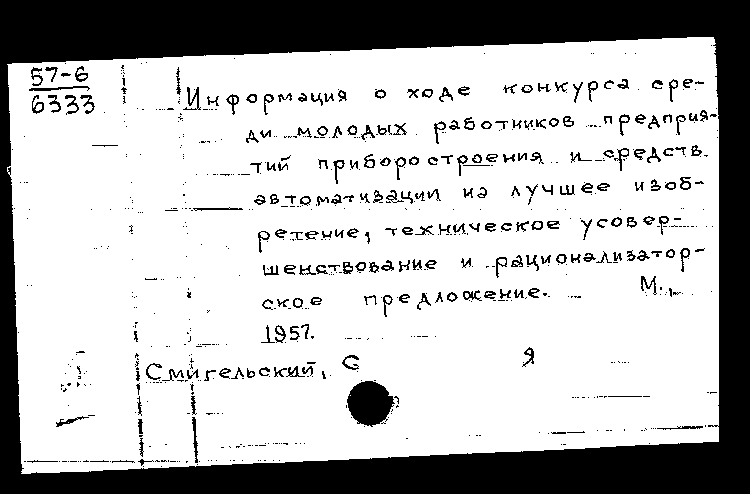 57-6
6333
Информация о ходе конкурса сре-
ди молодых работников предприя-
тий приборостроения и средств
автоматизации на лучшее изоб-
ретение, техническое усовер-
шенствование и рационализатор-
ское предложение. М.,
1957.
Смигельский, С Я